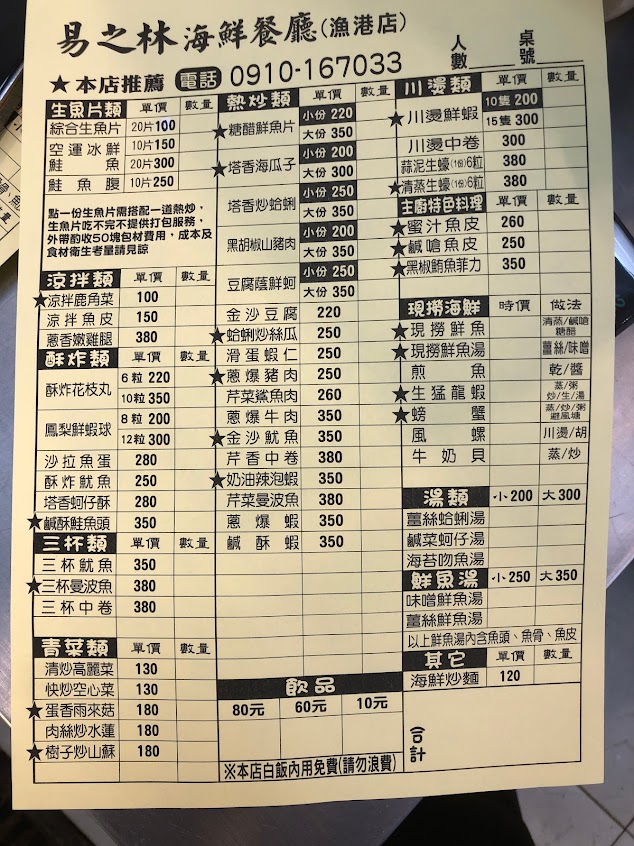 易之林海鮮餐廳(漁港店)
人數____ 桌號____
★本店推薦 電話 0910-167033
生魚片類 單價 數量
綜合生魚片 20片100
空運冰鮮 10片150
鮭魚 20片300
鮭魚腹 10片250
點一份生魚片需搭配一道熱炒，
生魚片吃不完不提供打包服務，
外帶酌收50塊包材費用，成本及
食材衛生考量請見諒
涼拌類 單價 數量
★涼拌鹿角菜 100
涼拌魚皮 150
蔥香嫩雞腿 380
酥炸類 單價 數量
酥炸花枝丸 6粒 220
10粒 350
鳳梨鮮蝦球 8粒 200
12粒 300
沙拉魚蛋 280
酥炸魷魚 250
塔香蚵仔酥 280
★鹹酥鮭魚頭 350
三杯類 單價 數量
三杯魷魚 350
★三杯曼波魚 380
三杯中卷 380
青菜類 單價 數量
清炒高麗菜 130
快炒空心菜 130
★蛋香雨來菇 180
肉絲炒水蓮 180
★樹子炒山蘇 180
熱炒類 單價 數量
★糖醋鮮魚片 小份 220
大份 350
★塔香海瓜子 小份 200
大份 300
塔香炒蛤蜊 小份 250
大份 350
黑胡椒山豬肉 小份 200
大份 300
豆腐蔭鮮蚵 小份 250
大份 350
金沙豆腐 220
★蛤蜊炒絲瓜 250
滑蛋蝦仁 250
★蔥爆豬肉 250
芹菜鯊魚肉 260
蔥爆牛肉 350
★金沙魷魚 350
芹香中卷 380
★奶油辣泡蝦 350
芹菜曼波魚 380
蔥爆蝦 350
鹹酥蝦 350
飲品
80元 60元 10元
※本店白飯內用免費(請勿浪費)
川燙類 單價 數量
★川燙鮮蝦 10隻 200
15隻 300
川燙中卷 300
蒜泥生蠔(1份)6粒 380
★清蒸生蠔(1份)6粒 380
主廚特色料理 單價 數量
★蜜汁魚皮 260
★鹹嗆魚皮 250
★黑椒鮪魚菲力 350
現撈海鮮 時價 做法
★現撈鮮魚 清蒸/鹹嗆
糖醋
★現撈鮮魚湯 薑絲/味噌
煎魚 乾/醬
★生猛龍蝦 蒸/粥
炒/生/湯
★螃蟹 蒸/炒/粥
避風塘
風螺 川燙/胡
牛奶貝 蒸/炒
湯類 小200 大300
薑絲蛤蜊湯
鹹菜蚵仔湯
海苔吻魚湯
鮮魚湯 小250 大350
味噌鮮魚湯
薑絲鮮魚湯
以上鮮魚湯內含魚頭、魚骨、魚皮
其它 單價 數量
海鮮炒麵 120
合計